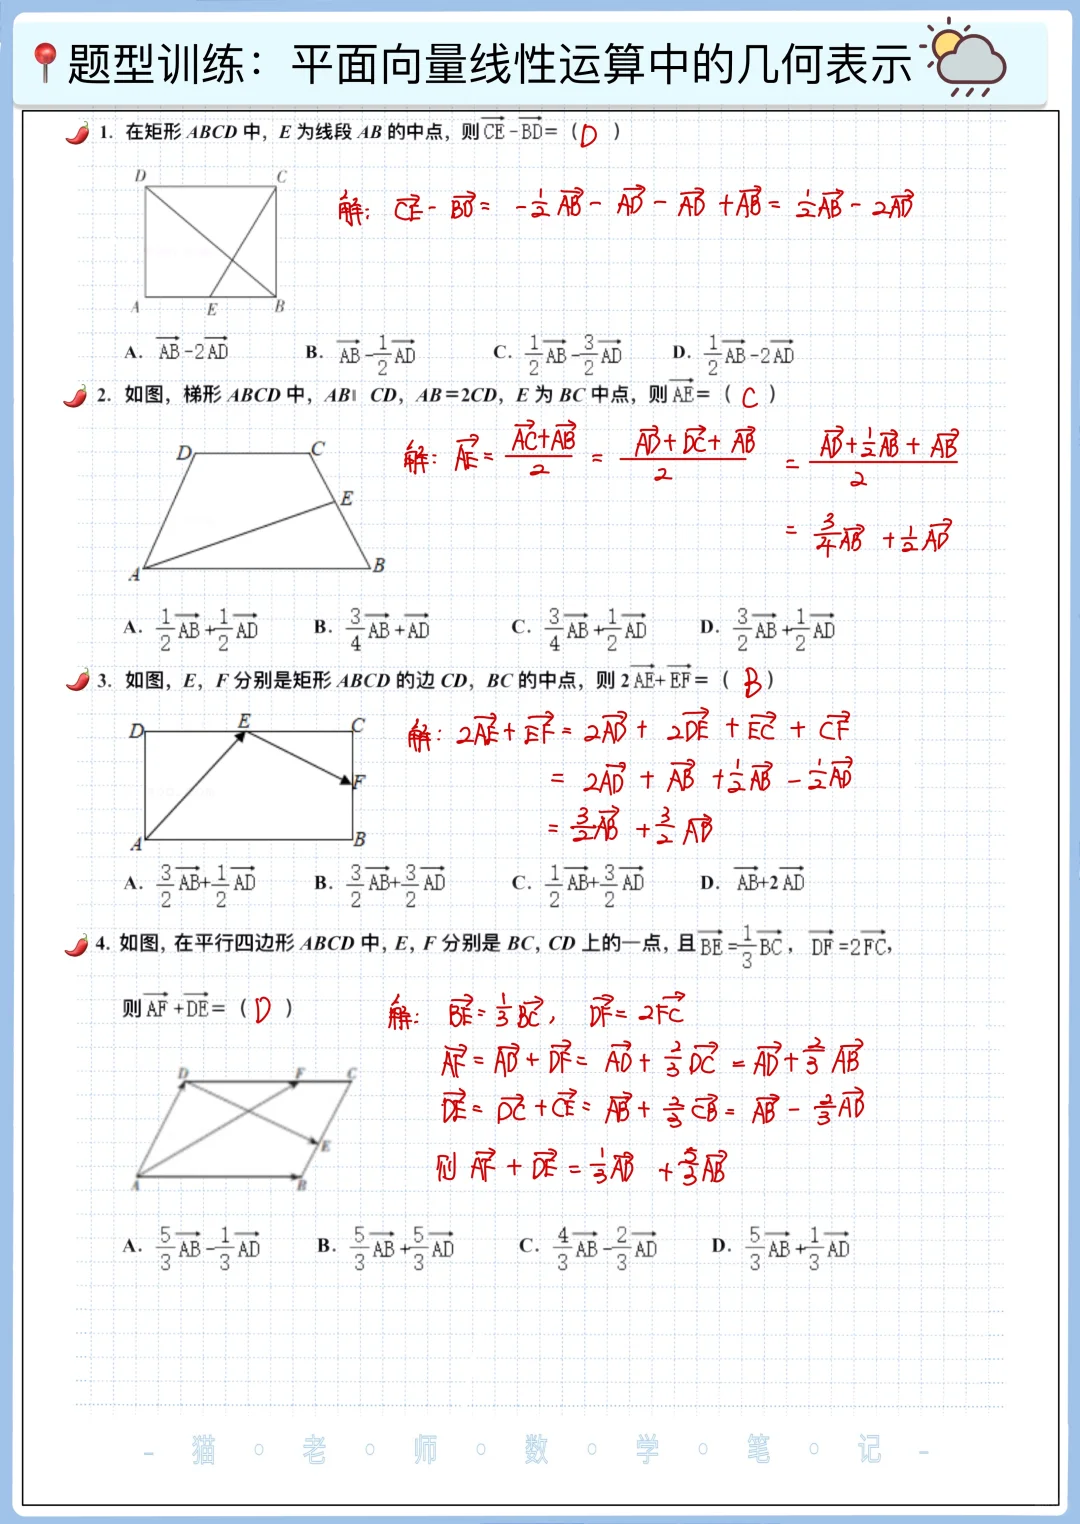 题型训练：平面向量线性运算中的几何表示
1. 在矩形 ABCD 中，E 为线段 AB 的中点，则 $\overrightarrow{CE}-\overrightarrow{BD}$=（ D ）
D C
A E B
解：$\overrightarrow{CE}-\overrightarrow{BD}=-\frac{1}{2}\overrightarrow{AB}-\overrightarrow{AD}-\overrightarrow{AD}+\overrightarrow{AB}=\frac{1}{2}\overrightarrow{AB}-2\overrightarrow{AD}$
A. $\overrightarrow{AB}-2\overrightarrow{AD}$ B. $\overrightarrow{AB}-\frac{1}{2}\overrightarrow{AD}$ C. $\frac{1}{2}\overrightarrow{AB}-\frac{3}{2}\overrightarrow{AD}$ D. $\frac{1}{2}\overrightarrow{AB}-2\overrightarrow{AD}$
2. 如图，梯形 ABCD 中，AB∥CD，AB=2CD，E 为 BC 中点，则 $\overrightarrow{AE}$=（ C ）
D C
E
A B
解：$\overrightarrow{AE}=\frac{\overrightarrow{AC}+\overrightarrow{AB}}{2}=\frac{\overrightarrow{AD}+\overrightarrow{DC}+\overrightarrow{AB}}{2}=\frac{\overrightarrow{AD}+\frac{1}{2}\overrightarrow{AB}+\overrightarrow{AB}}{2}$
$=\frac{3}{4}\overrightarrow{AB}+\frac{1}{2}\overrightarrow{AD}$
A. $\frac{1}{2}\overrightarrow{AB}+\frac{1}{2}\overrightarrow{AD}$ B. $\frac{3}{4}\overrightarrow{AB}+\overrightarrow{AD}$ C. $\frac{3}{4}\overrightarrow{AB}+\frac{1}{2}\overrightarrow{AD}$ D. $\frac{3}{2}\overrightarrow{AB}+\frac{1}{2}\overrightarrow{AD}$
3. 如图，E，F 分别是矩形 ABCD 的边 CD，BC 的中点，则 2$\overrightarrow{AE}+\overrightarrow{EF}$=（ B ）
D E C
F
A B
解：$2\overrightarrow{AE}+\overrightarrow{EF}=2\overrightarrow{AD}+2\overrightarrow{DE}+\overrightarrow{EC}+\overrightarrow{CF}$
$=2\overrightarrow{AD}+\overrightarrow{AB}+\frac{1}{2}\overrightarrow{AB}-\frac{1}{2}\overrightarrow{AD}$
$=\frac{3}{2}\overrightarrow{AB}+\frac{3}{2}\overrightarrow{AD}$
A. $\frac{3}{2}\overrightarrow{AB}+\frac{1}{2}\overrightarrow{AD}$ B. $\frac{3}{2}\overrightarrow{AB}+\frac{3}{2}\overrightarrow{AD}$ C. $\frac{1}{2}\overrightarrow{AB}+\frac{3}{2}\overrightarrow{AD}$ D. $\overrightarrow{AB}+2\overrightarrow{AD}$
4. 如图，在平行四边形 ABCD 中，E，F 分别是 BC，CD 上的一点，且 $\overrightarrow{BE}=\frac{1}{3}\overrightarrow{BC}$，$\overrightarrow{DF}=2\overrightarrow{FC}$，
则 $\overrightarrow{AF}+\overrightarrow{DE}$=（ D ）
D F C
E
A B
解：$\overrightarrow{BE}=\frac{1}{3}\overrightarrow{BC}$，$\overrightarrow{DF}=2\overrightarrow{FC}$
$\overrightarrow{AF}=\overrightarrow{AD}+\overrightarrow{DF}=\overrightarrow{AD}+\frac{2}{3}\overrightarrow{DC}=\overrightarrow{AD}+\frac{2}{3}\overrightarrow{AB}$
$\overrightarrow{DE}=\overrightarrow{DC}+\overrightarrow{CE}=\overrightarrow{AB}+\frac{2}{3}\overrightarrow{CB}=\overrightarrow{AB}-\frac{2}{3}\overrightarrow{AD}$
则 $\overrightarrow{AF}+\overrightarrow{DE}=\frac{1}{3}\overrightarrow{AD}+\frac{5}{3}\overrightarrow{AB}$
A. $\frac{5}{3}\overrightarrow{AB}-\frac{1}{3}\overrightarrow{AD}$ B. $\frac{5}{3}\overrightarrow{AB}+\frac{5}{3}\overrightarrow{AD}$ C. $\frac{4}{3}\overrightarrow{AB}-\frac{2}{3}\overrightarrow{AD}$ D. $\frac{5}{3}\overrightarrow{AB}+\frac{1}{3}\overrightarrow{AD}$
- 猫 · 老 · 师 · 数 · 学 · 笔 · 记 -